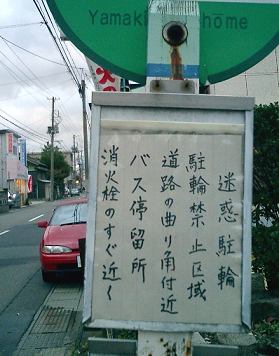 迷惑駐輪
駐輪禁止区域
道路の曲り角付近
バス停留所
消火栓のすぐ近く